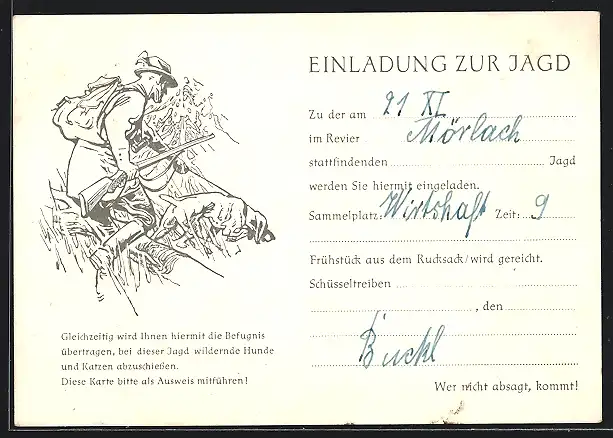 EINLADUNG ZUR JAGD
Zu der am 21 XI
im Revier Mörlach
stattfindenden Jagd
werden Sie hiermit eingeladen.
Sammelplatz: Wirtshaft Zeit: 9
Frühstück aus dem Rucksack/wird gereicht.
Schüsseltreiben
, den
Buckl
Wer nicht absagt, kommt!
Gleichzeitig wird Ihnen hiermit die Befugnis
übertragen, bei dieser Jagd wildernde Hunde
und Katzen abzuschießen.
Diese Karte bitte als Ausweis mitführen!